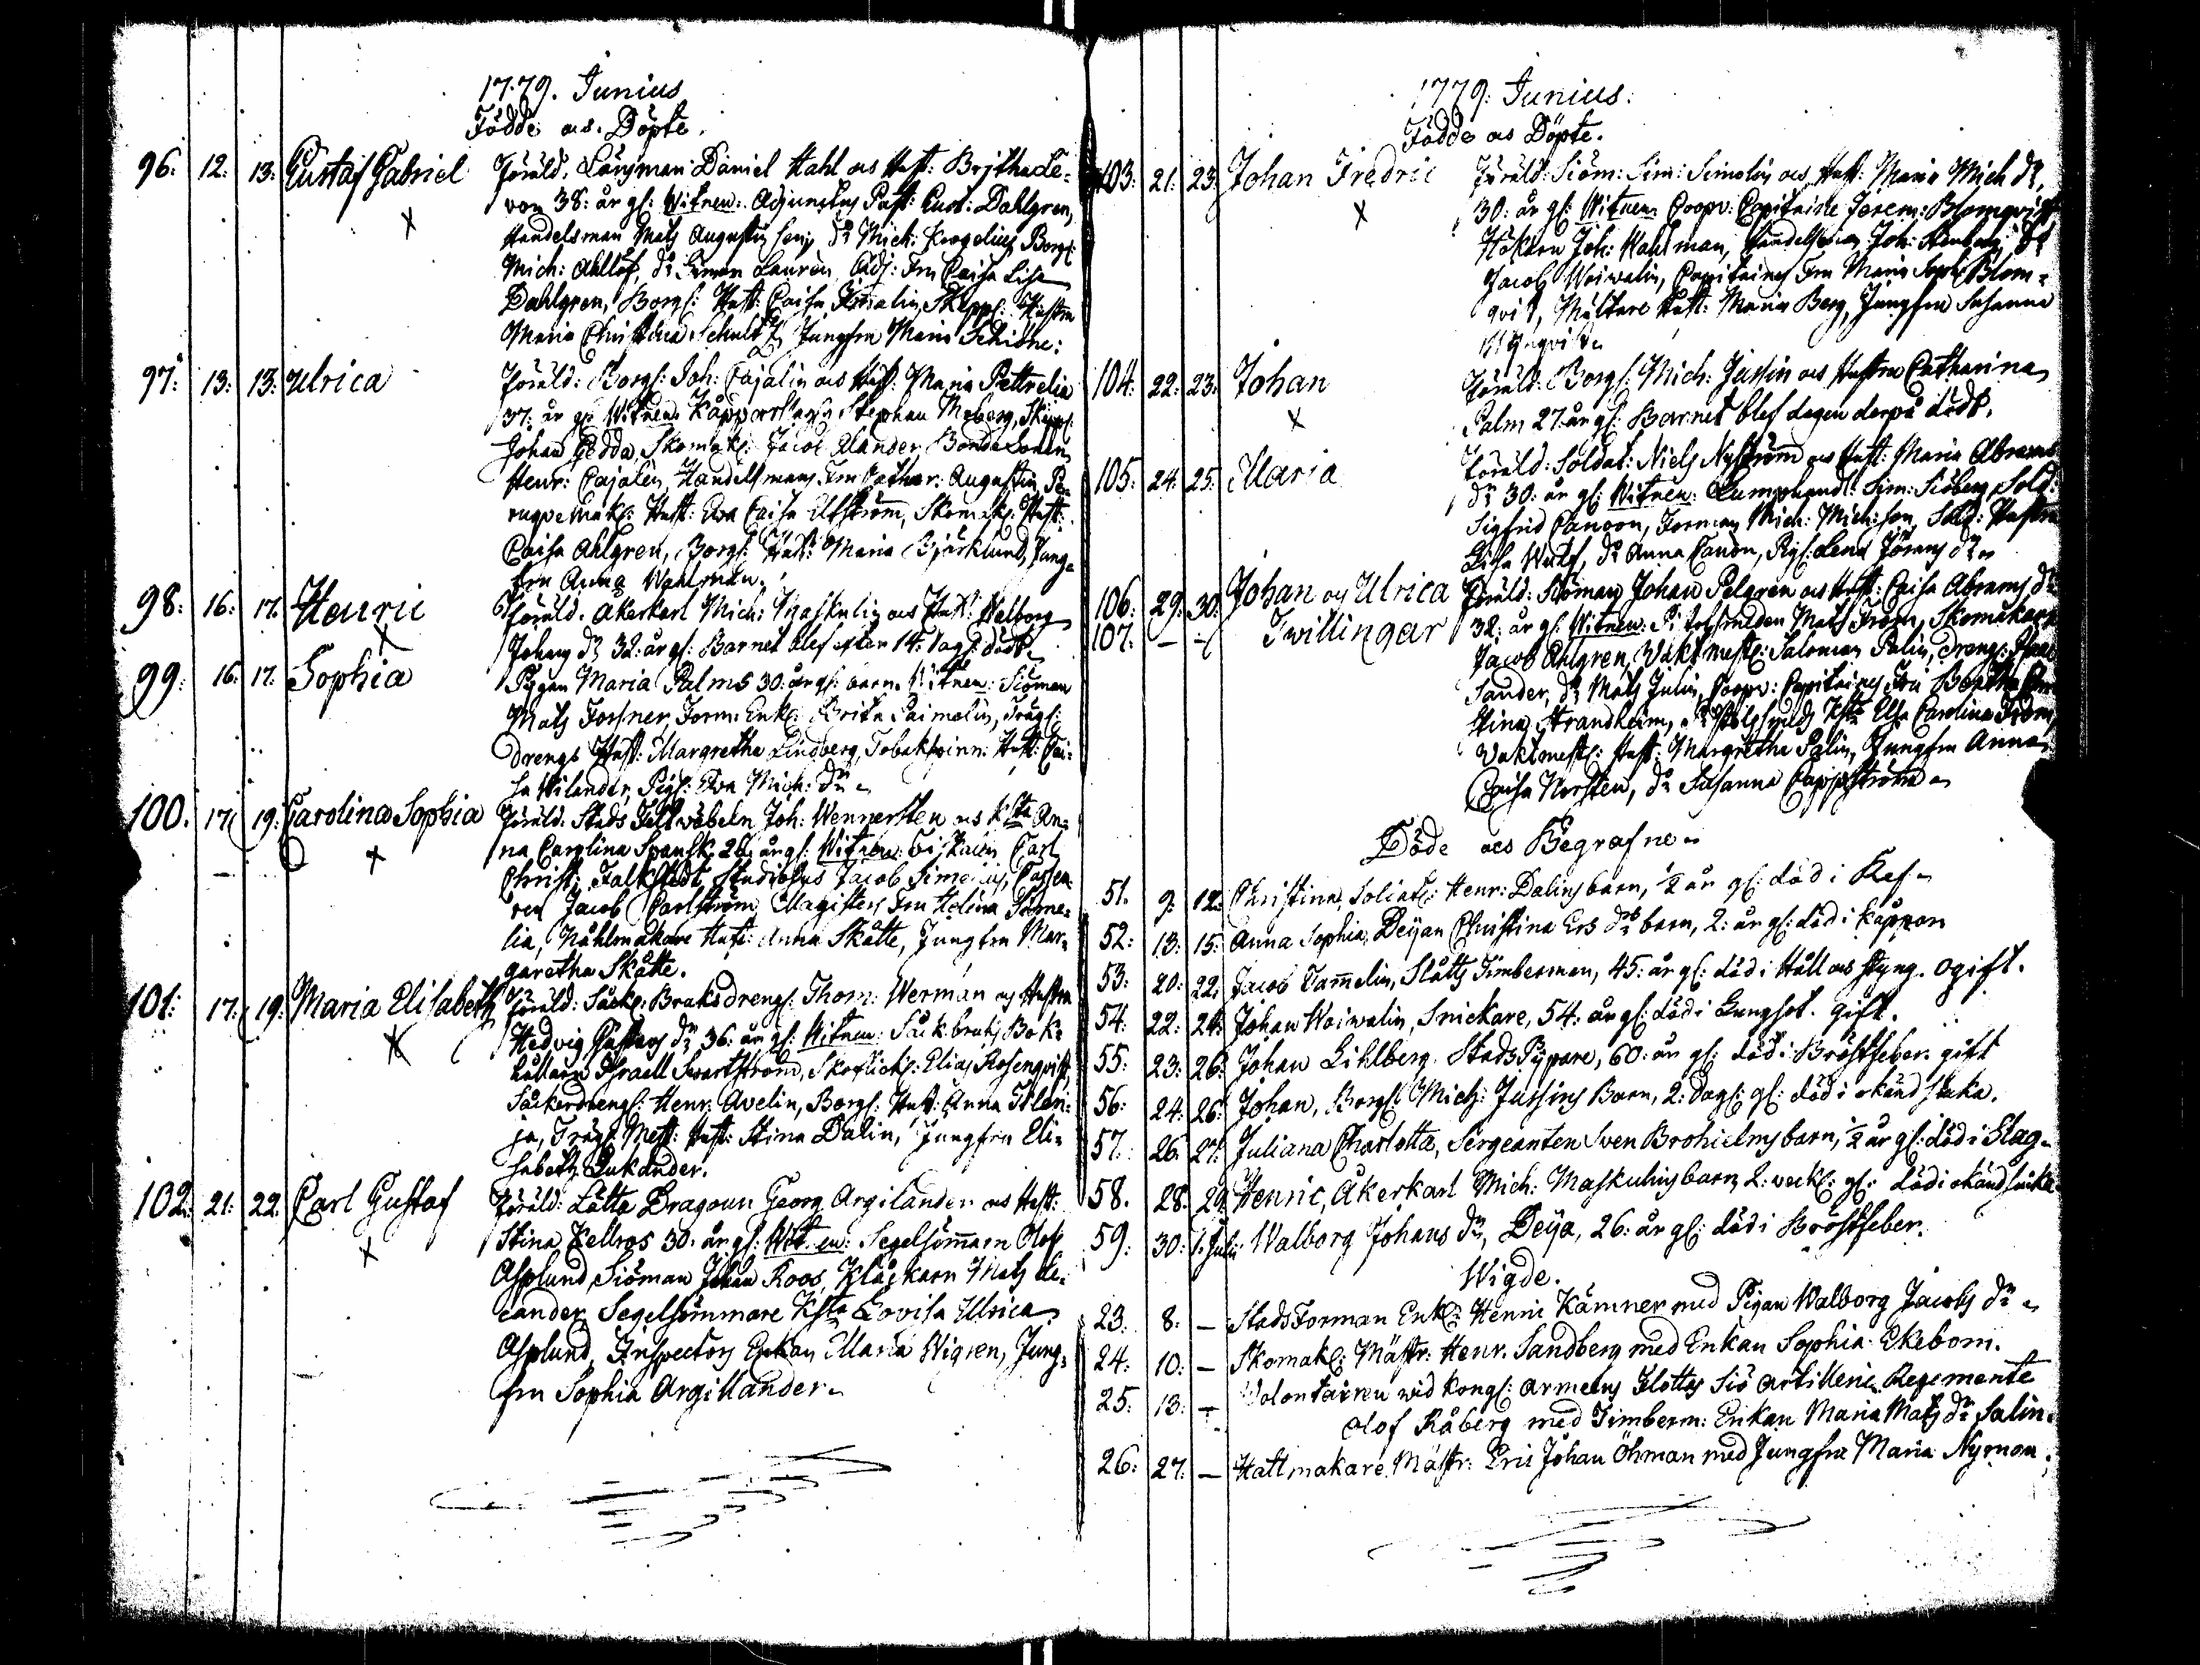 1779. Junius
Födde och Döpte.
96: 12: 13: Gustaf Gabriel Föräld. Länsman Daniel Hahl och Hust: Brjtha Le-
von 38: år gl: Witnen: Adjunctus Past: Gust: Dahlgren,
Handelsman Mats Augustin Dr Mich: Borgl:
Mich: Ahllöf, Dr Simon Lauren, Adj: Fru Caisa Lisa
Dahlgren, Borgl: Hust: Caisa Skepp: Hustru
Maria Christina Schultz Jungfru Maria
97: 13: 13: Ulrica Föräld: Borgl: Joh: Cajalin och Hust: Maria Pettrelia
37: år gl: Witnen Kopparslagar Stephan Moberg, Skepp:
Johan Gedda, Skomak: Jacob Alander, Bonde Sonen
Henr: Cajalen, Handelsmans Fru Cathar: Augustin Pe-
rugvemak: Hust: Eva Caisa Skomak: Hust:
Caisa Ahlgren, Borgl: Hust: Maria Björklund, Jung-
fru Anna Wahlman.
98: 16: 17: Henric Föräld. Åkerkarl Mich: Maskulin och Hust: Walborg
Johans dr 32: år gl: Barnet blef efter 14: dagl: dödt
99: 16: 17: Sophia Pigan Maria Palms 30: år gl: barn. Witnen: Siöman
Mats Forsner, Form: Enk: Brita Drägl:
Drengs Hust: Margretha Lindberg, Tobakspinn: Hust: Cai-
sa Wilander, Pig: Eva Mich: dr
100. 17: 19: Carolina Sophia Föräld. Stads Feltwäbeln Joh: Wennersten och Hsta An-
na Carolina Spansk 26. år gl: Witnen: Fiskalen Carl
Christ: Falkstedt, Studiosus Jacob Simelius, Cassen
ren Jacob Carlström Magisters Fru Helena Sime-
lia, Nåhlmakare Hust: Anna Skätte, Jungfru Mar-
garetha Skätte.
101: 17: 19: Maria Elisabeth Föräld: Säck: Bruksdreng: Thom: Werman och Hustru
Hedvig Gustavs dr 36: år gl: Witnen: Säckbruks Bok-
hållaren Israell Swartström, Elias Rosenqvist,
Säckerdreng: Henr: Avelin, Borgl: Hust: Anna
ja, Träg: Mest: Hust: Stina Dalin, Jungfru Eli-
sabeth Lukander.
102: 21: 22: Carl Gustaf Föräld: Lätta Dragoun Georg Argillander och Hust:
Stina Kellros 30: år gl: Witnen: Segelsömmarn Olof
Asplund, Siöman Johan Roos, Mats
cander, Segelsömmare Hsta Lovisa Ulrica
Asplund, Inspectors Enkan Maria Wigren, Jung-
fru Sophia Argillander
1779: Junius:
Födde och Döpte.
103: 21: 23: Johan Fredric Föräld: Siöm: Sim: Simelin och Hust: Maria Mich dr,
30: år gl: Witnen Coopv: Capitaine Jerem: Blomqvist
Joh: Wahlman, Handelsman Joh: dr
Jacob Woiwalin, Capitains Fru Maria Soph: Blom-
qvist, Mältare Hust: Maria Berg, Jungfru Susanna

104: 22: 23: Johan Föräld: Borgl: Mich: Jussin och Hustru Catharina
Palm 27. år gl: Barnet blef dagen derpå dödt.
105: 24: 25: Maria Föräld: Soldat: Niels Nyström och Hust: Maria Abrams
dr 30: år gl: Witnen: Sim: Siöberg, Sold:
Sigfrid Canoon, Forman Mich: Michison, Sold: Hustru
Lisa dr Anna Canon, Pig: Lena Jörans dr
106: 29: 30: Johan och Ulrica Föräld: Siöman Johan Pelgren och Hust: Caisa Abrams dr
107: — — Twillingar 32: år gl: Witnen: Mats From, Skomakare
Jacob Ahlgren, Waktmest: Salomon Palin, Dreng:
Sander, dr Mats Julin, Coopv: Capitains Fru
stina Strandheim, Hsta Ulla Carolina From,
Waktmest: Hust: Margretha Palin, Jungfru Anna
Caisa Norsten, dr Susanna Cappström
Döde och Begrafne
51. 9: 12: Christina, Henr: Dalins barn, ½ år gl: död i Kef-
52: 13: 15: Anna Sophia, Deijan Christina Ers drs barn, 2: år gl: död i koppor
53: 20: 22: Jacob Tamelin, Slåtts Timberman, 45: år gl: död i Håll och styng. ogift.
54: 22: 24: Johan Woiwalin, Snickare, 54: år gl: död i Lungsot. gift.
55: 23: 26: Johan Lihlberg Stads Pypare, 60: år gl: död i Bröstfeber. gift
56: 24: 26: Johan, Borgl: Mich: Jussins Barn, 2: dagl: gl: död i okänd siuka.
57: 26: 27: Juliana Charlotta, Sergeanten Sven Brohielms barn, ½ år gl: död i Slag
58. 28: 29: Henric, Åkerkarl Mich: Maskulins barn, 2: weck: gl: död i okänd siuka
59: 30: 1. Julii Walborg Johans dr, Deija, 26: år gl: död i Bröstfeber.
Wigde.
23: 8: — Stads Forman Enkl: Henric Kämner med Pigan Walborg Jacobs dr
24: 10: — Skomak: Mästr: Henr. Sandberg med Enkan Sophia Ekebom.
25: 13: — Volontairen wid Kongl: Armeens Flottas Siö Artillerie Regemente
Olof Råberg med Timberm: Enkan Maria Mats dr Salin.
26: 27: — Hattmakare Mästr: Eric Johan Öhman med Jungfru Maria Nyman.